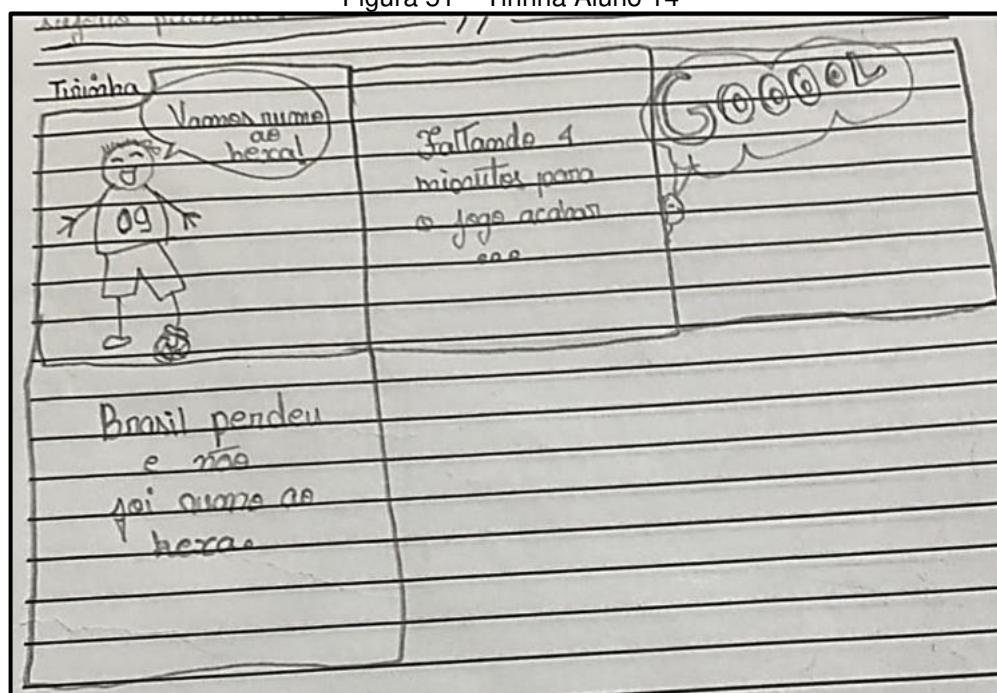 Figura 31 – Tirinha Aluno 14
Tirinha
Vamos rumo
ao
hexa!
Faltando 4
minutos para
o jogo acabar
...
GOOOOL
Brasil perdeu
e não
foi rumo ao
hexa.